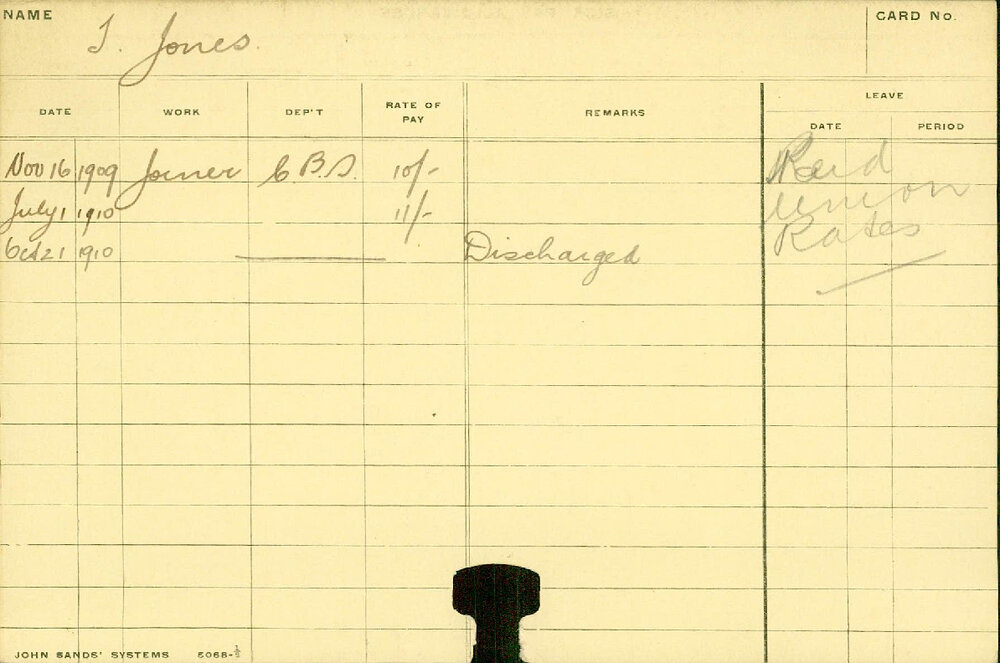 NAME J. Jones. CARD No.
LEAVE
DATE WORK DEP'T RATE OF PAY REMARKS DATE PERIOD
Nov 16 1909 Joiner C.B.S. 10/- Paid
July 1 1910 11/- Union
Oct 21 1910 Discharged Rates
JOHN SANDS' SYSTEMS 5068-½